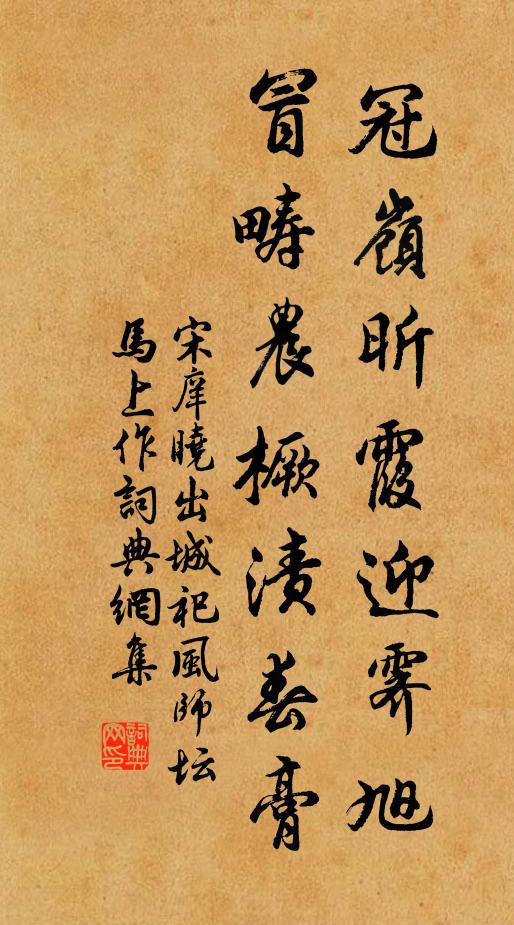 冠嶺昕霞迎霽旭
冒疇農橛漬春膏
宋庠曉出城祀風師坛
馬上作詞典網集
詞典網印